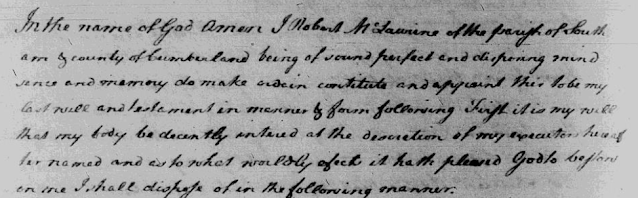 In the name of God Amen I Robert McLaurine of the parish of South
am & county of Cumberland being of sound perfect and disposing mind
sence and memory do make ordain contitute and appoint this to be my
last will and testament in manner & form following First it is my will
that my body be decently intered at the descretion of my executors hereaf
ter named and as to what worldly efects it hath pleased God to bestow
on me I shall dispose of in the following manner.